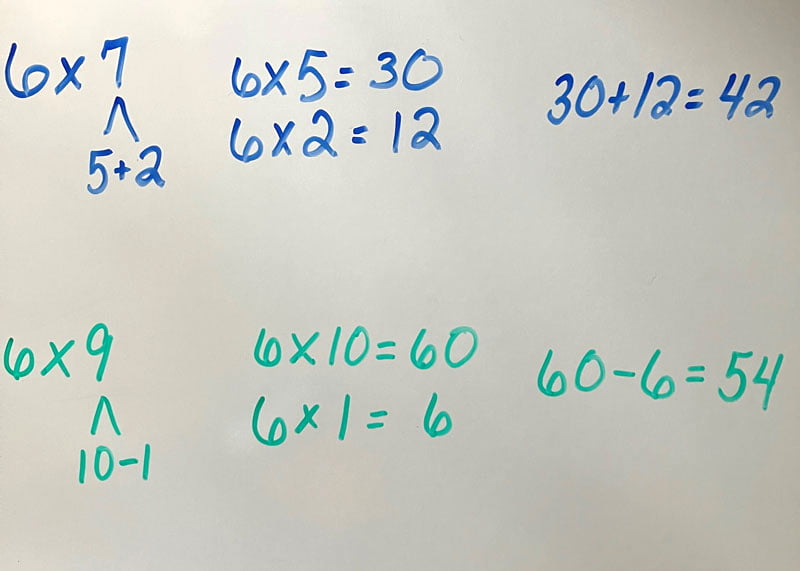 6x7
∧
5+2
6x5=30
6x2=12
30+12=42
6x9
∧
10-1
6x10=60
6x1=6
60-6=54